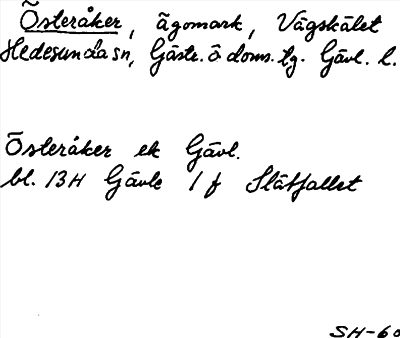 Österåker, ägomark, Vägskälet
Hedesunda sn, Gästr. ö doms. tg. Gävl. l.
Österåker ek Gävl.
bl. 13H Gävle 1 f Slåtfallet
SH-60